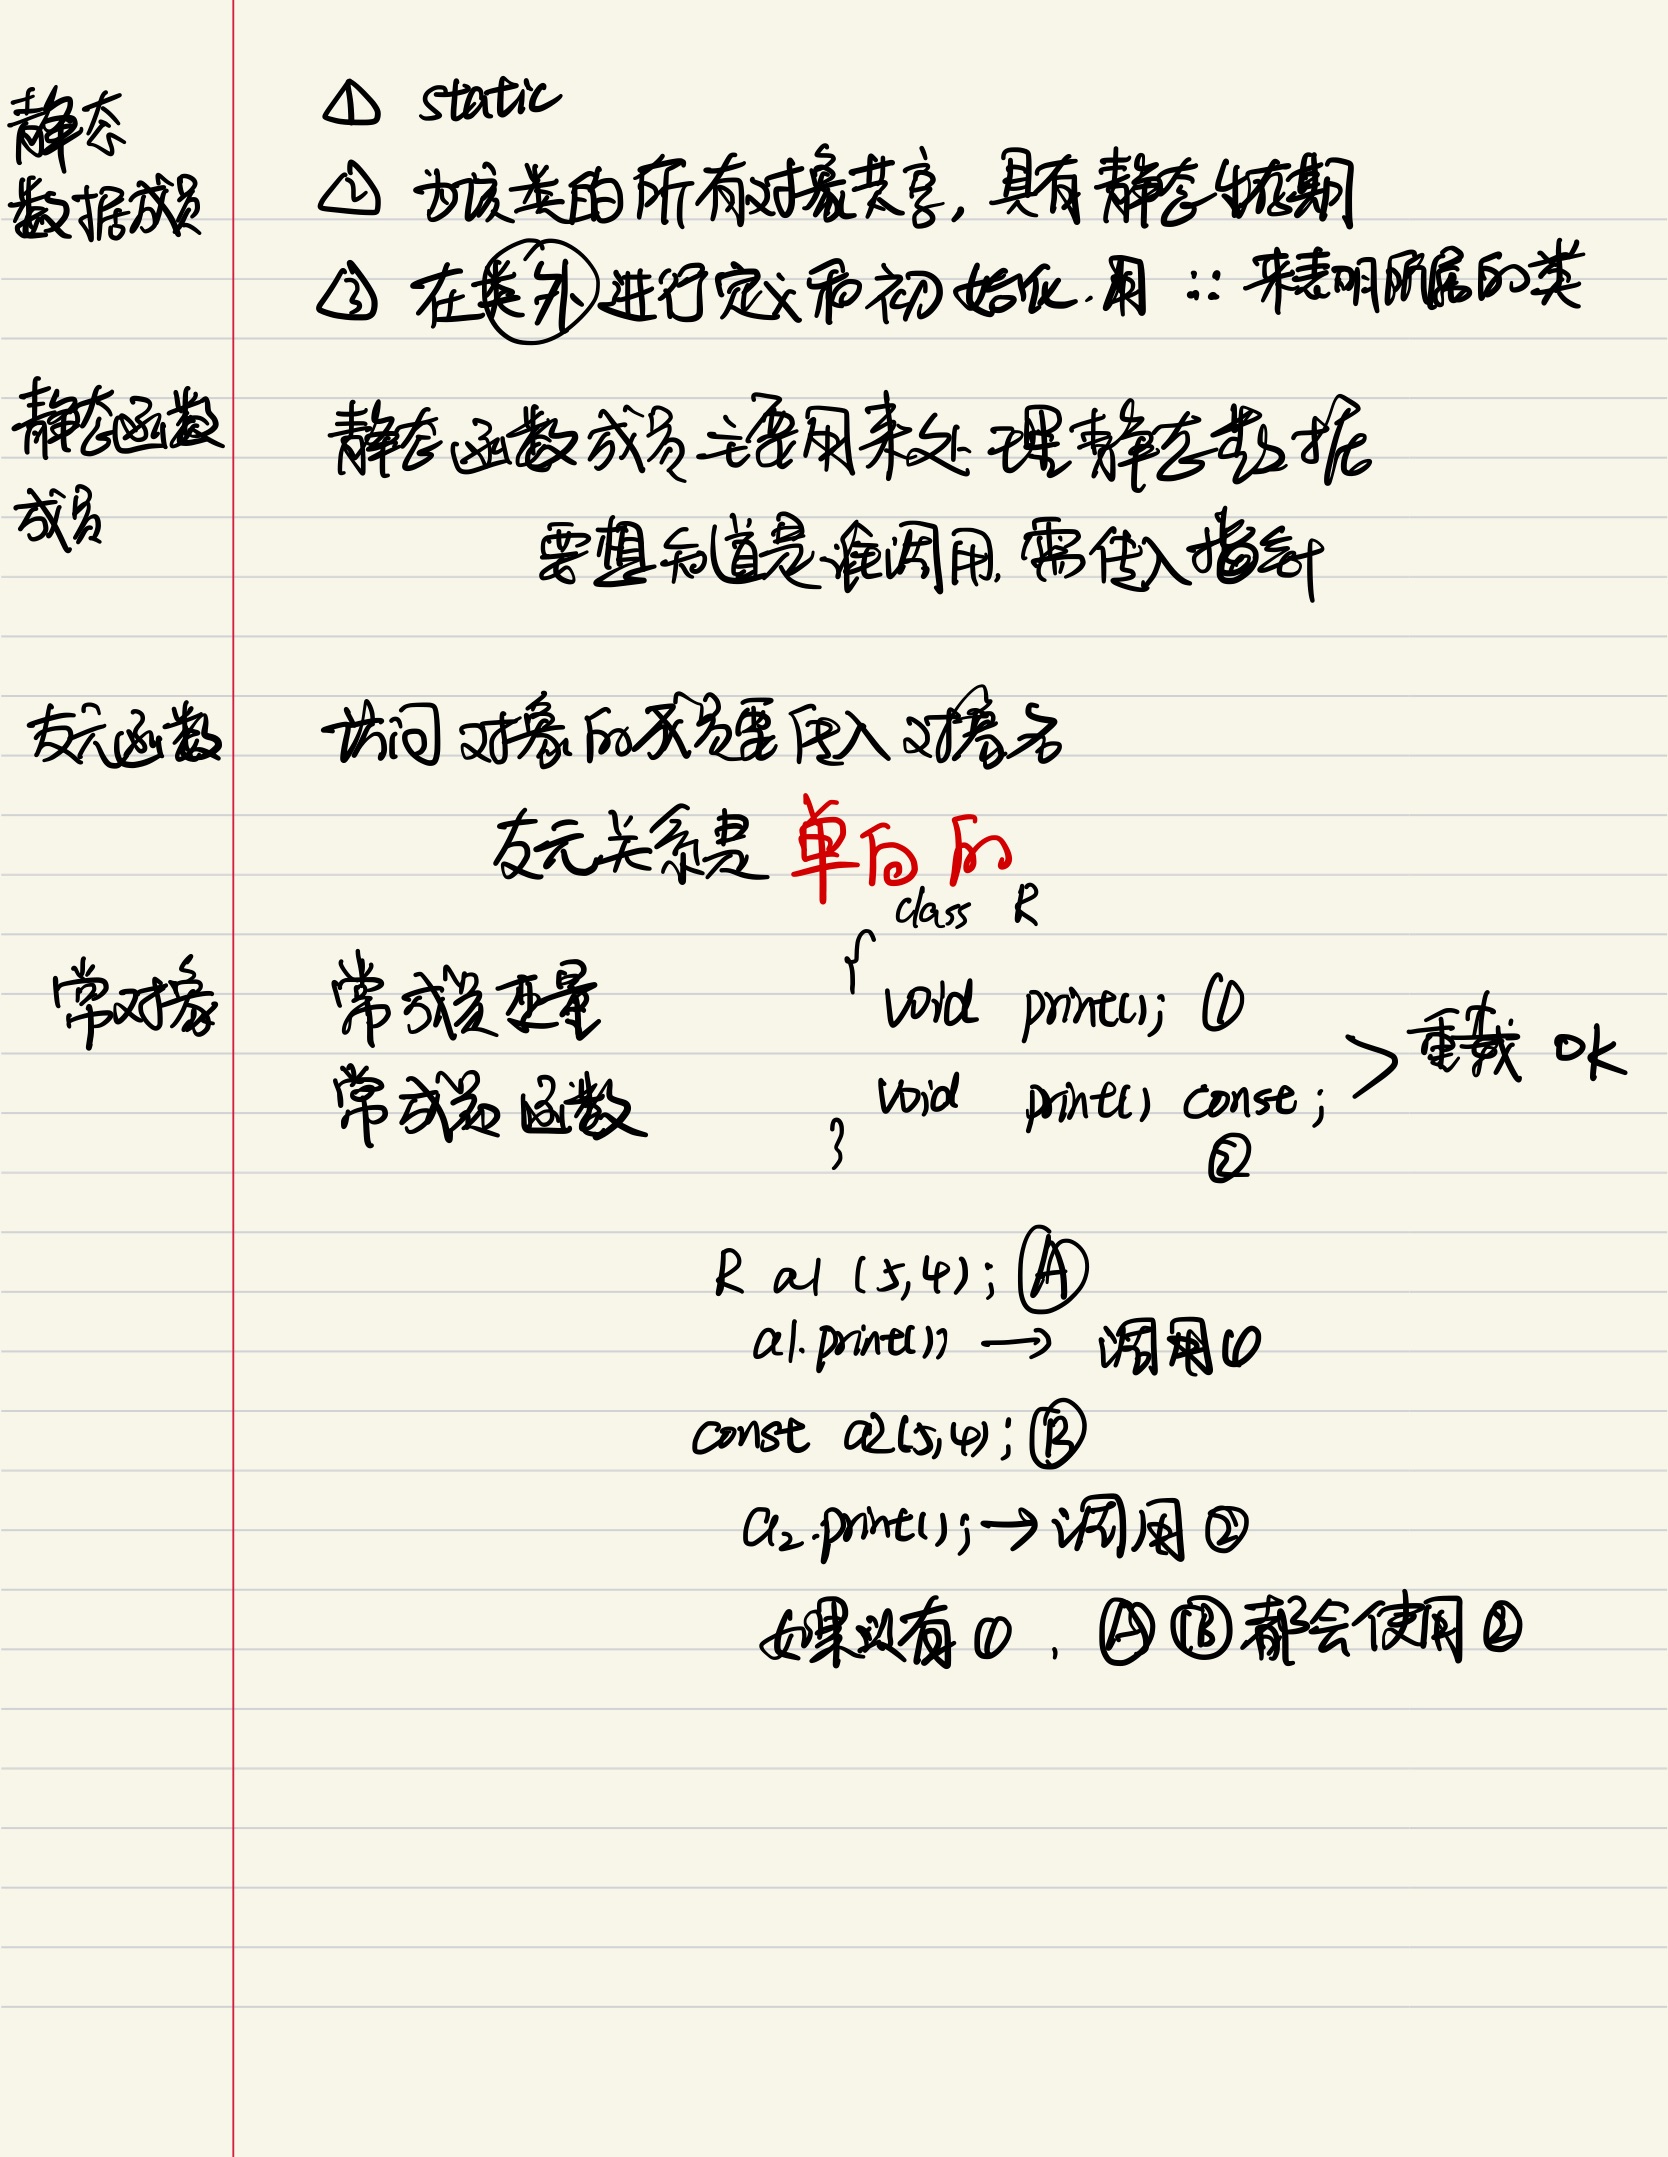 静态
数据成员
① static
② 为该类的所有对象共享，具有静态生存期
③ 在类外进行定义和初始化.用 :: 来表明所属的类
静态函数
成员
静态函数成员主要用来处理静态数据
要想知道是谁调用,需传入指针
友元函数
访问对象的成员要传入对象名
友元关系是单向的
常对象
常成员变量
常成员函数
class R
{
void print(); ①
void print() const;
②
}
> 重载 OK
R a1 (5,4); Ⓐ
a1.print(); → 调用①
const a2(5,4); Ⓑ
a2.print(); → 调用②
如果没有①, Ⓐ Ⓑ都会使用②